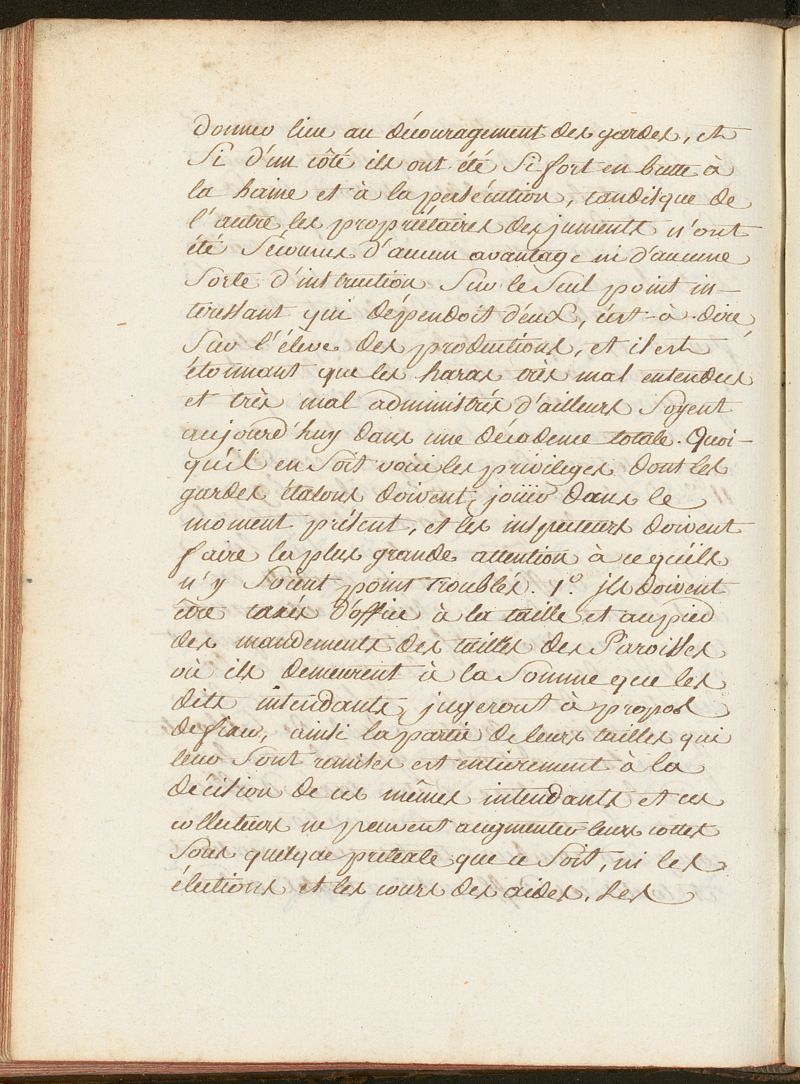 donner lieu au découragement des gardes, et
Si d'un côté ils ont été Si fort en butte à
la haine et à la persécution, tandisque de
l'autre les propriétaires des juments n'ont
été Sécourus d'aucun avantage ni d'aucune
Sorte d'instruction Sur le Seul point in-
téressant qui dépendoit d'eux, c'est-à-dire
Sur l'éleve des productions, et il est
étonnant que les haras très mal entendus
et très mal administrés d'ailleurs Soyent
aujourd'huy dans une décadence totale. Quoi-
qu'il en Soit voici les privileges dont les
gardes étalons doivent jouir dans le
moment présent, et les inspecteurs doivent
faire la plus grande attention à ce qu'ils
n'y Soient point troublés. 1.° jls doivent
être taxés d'office à la taille et au pied
des mandements des tailles des Paroisses
où ils demeurent à la Somme que les
dits intendants jugeront à propos
de fixer, ainsi la partie de leurs tailles qui
leur Sont remises est entierement à la
décision de ces mêmes intendants et ces
collecteurs ne peuvent augmenter leurs cottes
Sous quelque pretexte que ce Soit, ni les
élections et les cours des aides. Les